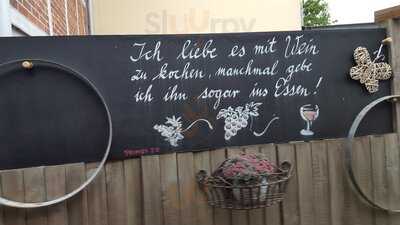 Sluurpy
Ich liebe es mit Wein
zu kochen, manchmal gebe
ich ihn sogar ins Essen!